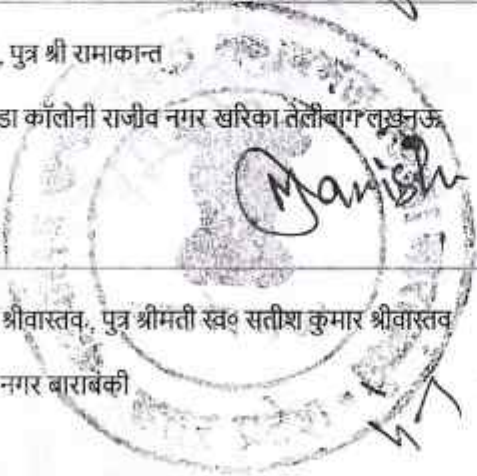 , पुत्र श्री रामाकान्त
डा कॉलोनी राजीव नगर खरिका तेलीबाग लखनऊ
Manish
श्रीवास्तव., पुत्र श्रीमती स्व० सतीश कुमार श्रीवास्तव
नगर बाराबंकी